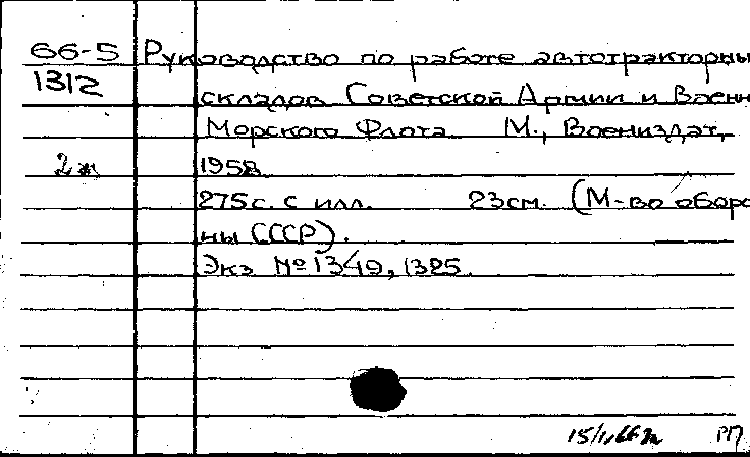 66-5 Руководство по работе автотракторны
1312 складов Советской Армии и Воен
Морского Флота М., Воениздат,
2 эк 1958
275с. с илл. 23см. (М-во оборо
ны СССР).
Экз №1349, 1325.
РП